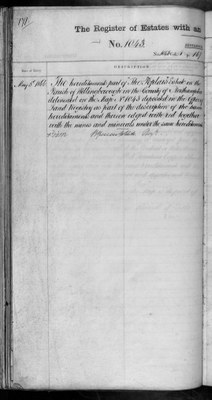 The Register of Estates with an
No. 1043.
DESCRIPTION
May 5th 1868
The hereditaments part of The Estate in the
Parish of Wellingborough in the County of Northampton
delineated on the Map No. 1043 deposited in the Office of
Land Registry as part of the description of the same
hereditaments and thereon edged with red together
with the mines and minerals under the same hereditaments